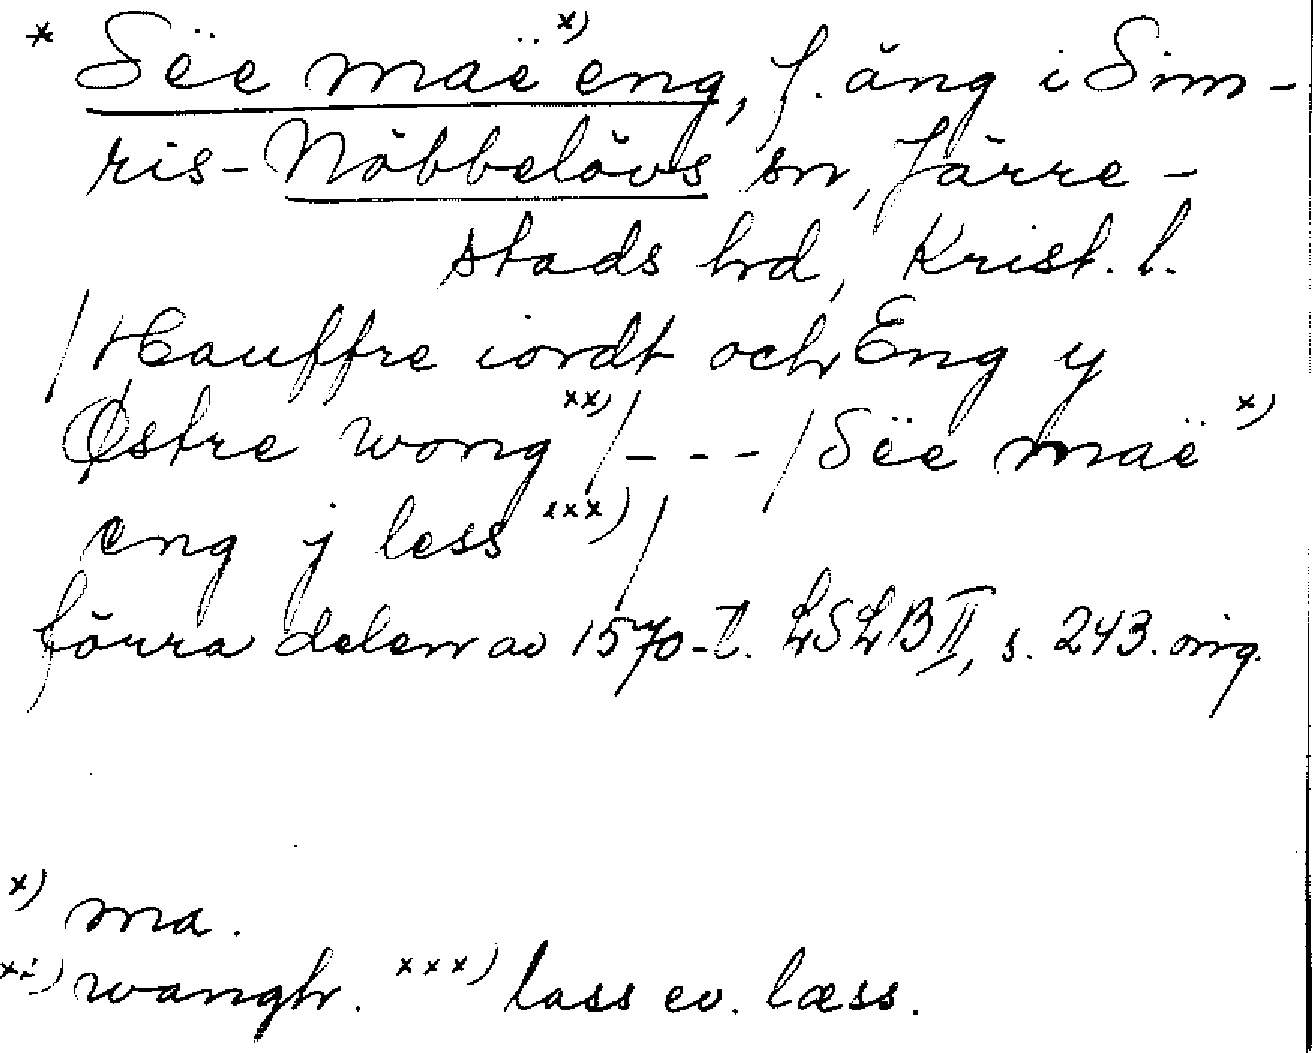 * Sëe maë x) eng, f. äng i Sim-
ris-Nöbbelövs sn, Järre-
stads hd, Krist. l.
/Hauffre iordt och Eng y
Østre wong xx)/---/Sëe maë x)
eng j less xxx)/
förra delen av 1570-t. LSLB II, s. 243. orig.
x) ma.
xx) wangh. xxx) lass ev. læss.